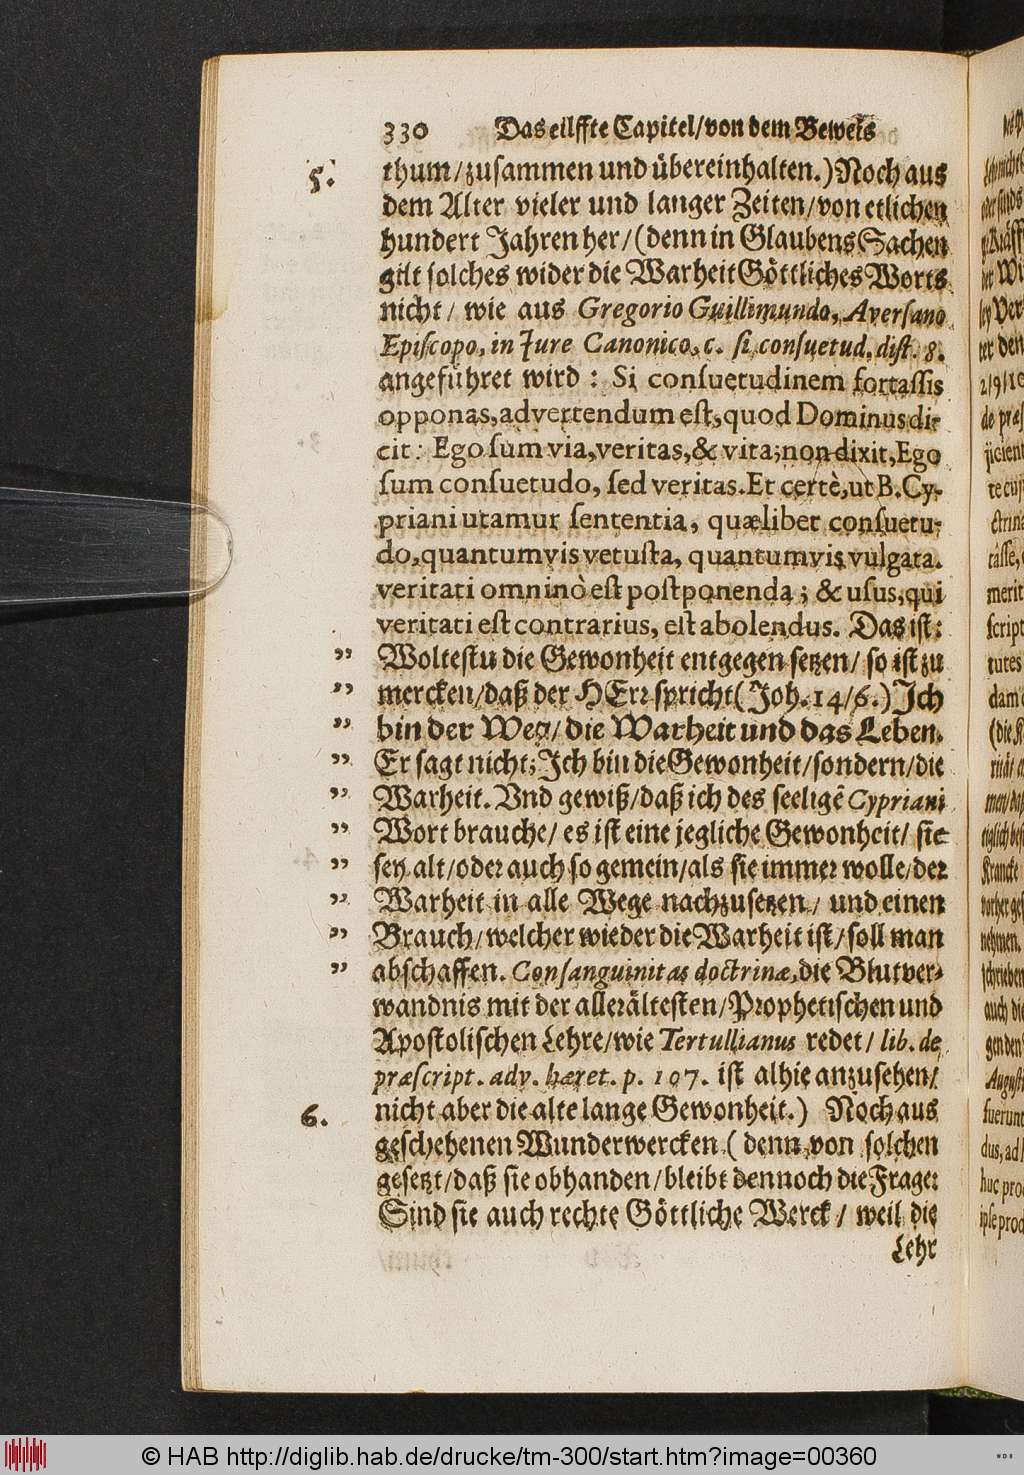 330 Das eilffte Capitel/von dem Beweis
5. thum/zusammen und übereinhalten.) Noch aus
dem Alter vieler und langer Zeiten/von etlichen
hundert Jahren her/(denn in Glaubens Sachen
gilt solches wider die Warheit Göttliches Worts
nicht/ wie aus Gregorio Guillimundo, Aversano
Episcopo, in Jure Canonico, c. si consuetud. dist. 8.
angeführet wird: Si consuetudinem fortassis
opponas, advertendum est, quod Dominus di-
cit: Ego sum via, veritas, & vita; non dixit, Ego
sum consuetudo, sed veritas. Et certè, ut B. Cy-
priani utamur sententia, quælibet consuetu-
do, quantumvis vetusta, quantumvis vulgata.
veritati omninò est postponenda; & usus, qui
veritati est contrarius, est abolendus. Das ist:
” Woltestu die Gewonheit entgegen setzen/ so ist zu
” mercken/daß der HErr spricht (Joh. 14/6.) Ich
” bin der Weg/ die Warheit und das Leben.
” Er sagt nicht; Ich bin die Gewonheit/sondern/die
” Warheit. Vnd gewiß/daß ich des seeligē Cypriani
” Wort brauche/ es ist eine jegliche Gewonheit/ sie
” sey alt/oder auch so gemein/als sie immer wolle/der
” Warheit in alle Wege nachzusetzen/ und einen
” Brauch/welcher wieder die Warheit ist/soll man
” abschaffen. Consanguinitas doctrinæ, die Blutver-
wandnis mit der allerältesten/Prophetischen und
Apostolischen Lehre/wie Tertullianus redet/ lib. de
præscript. adv. hæret. p. 107. ist alhie anzusehen/
nicht aber die alte lange Gewonheit.) Noch aus
6. geschehenen Wunderwercken (denn von solchen
gesetzt/daß sie obhanden/bleibt dennoch die Frage:
Sind sie auch rechte Göttliche Werck/ weil die
Lehr
© HAB http://diglib.hab.de/drucke/tm-300/start.htm?image=00360